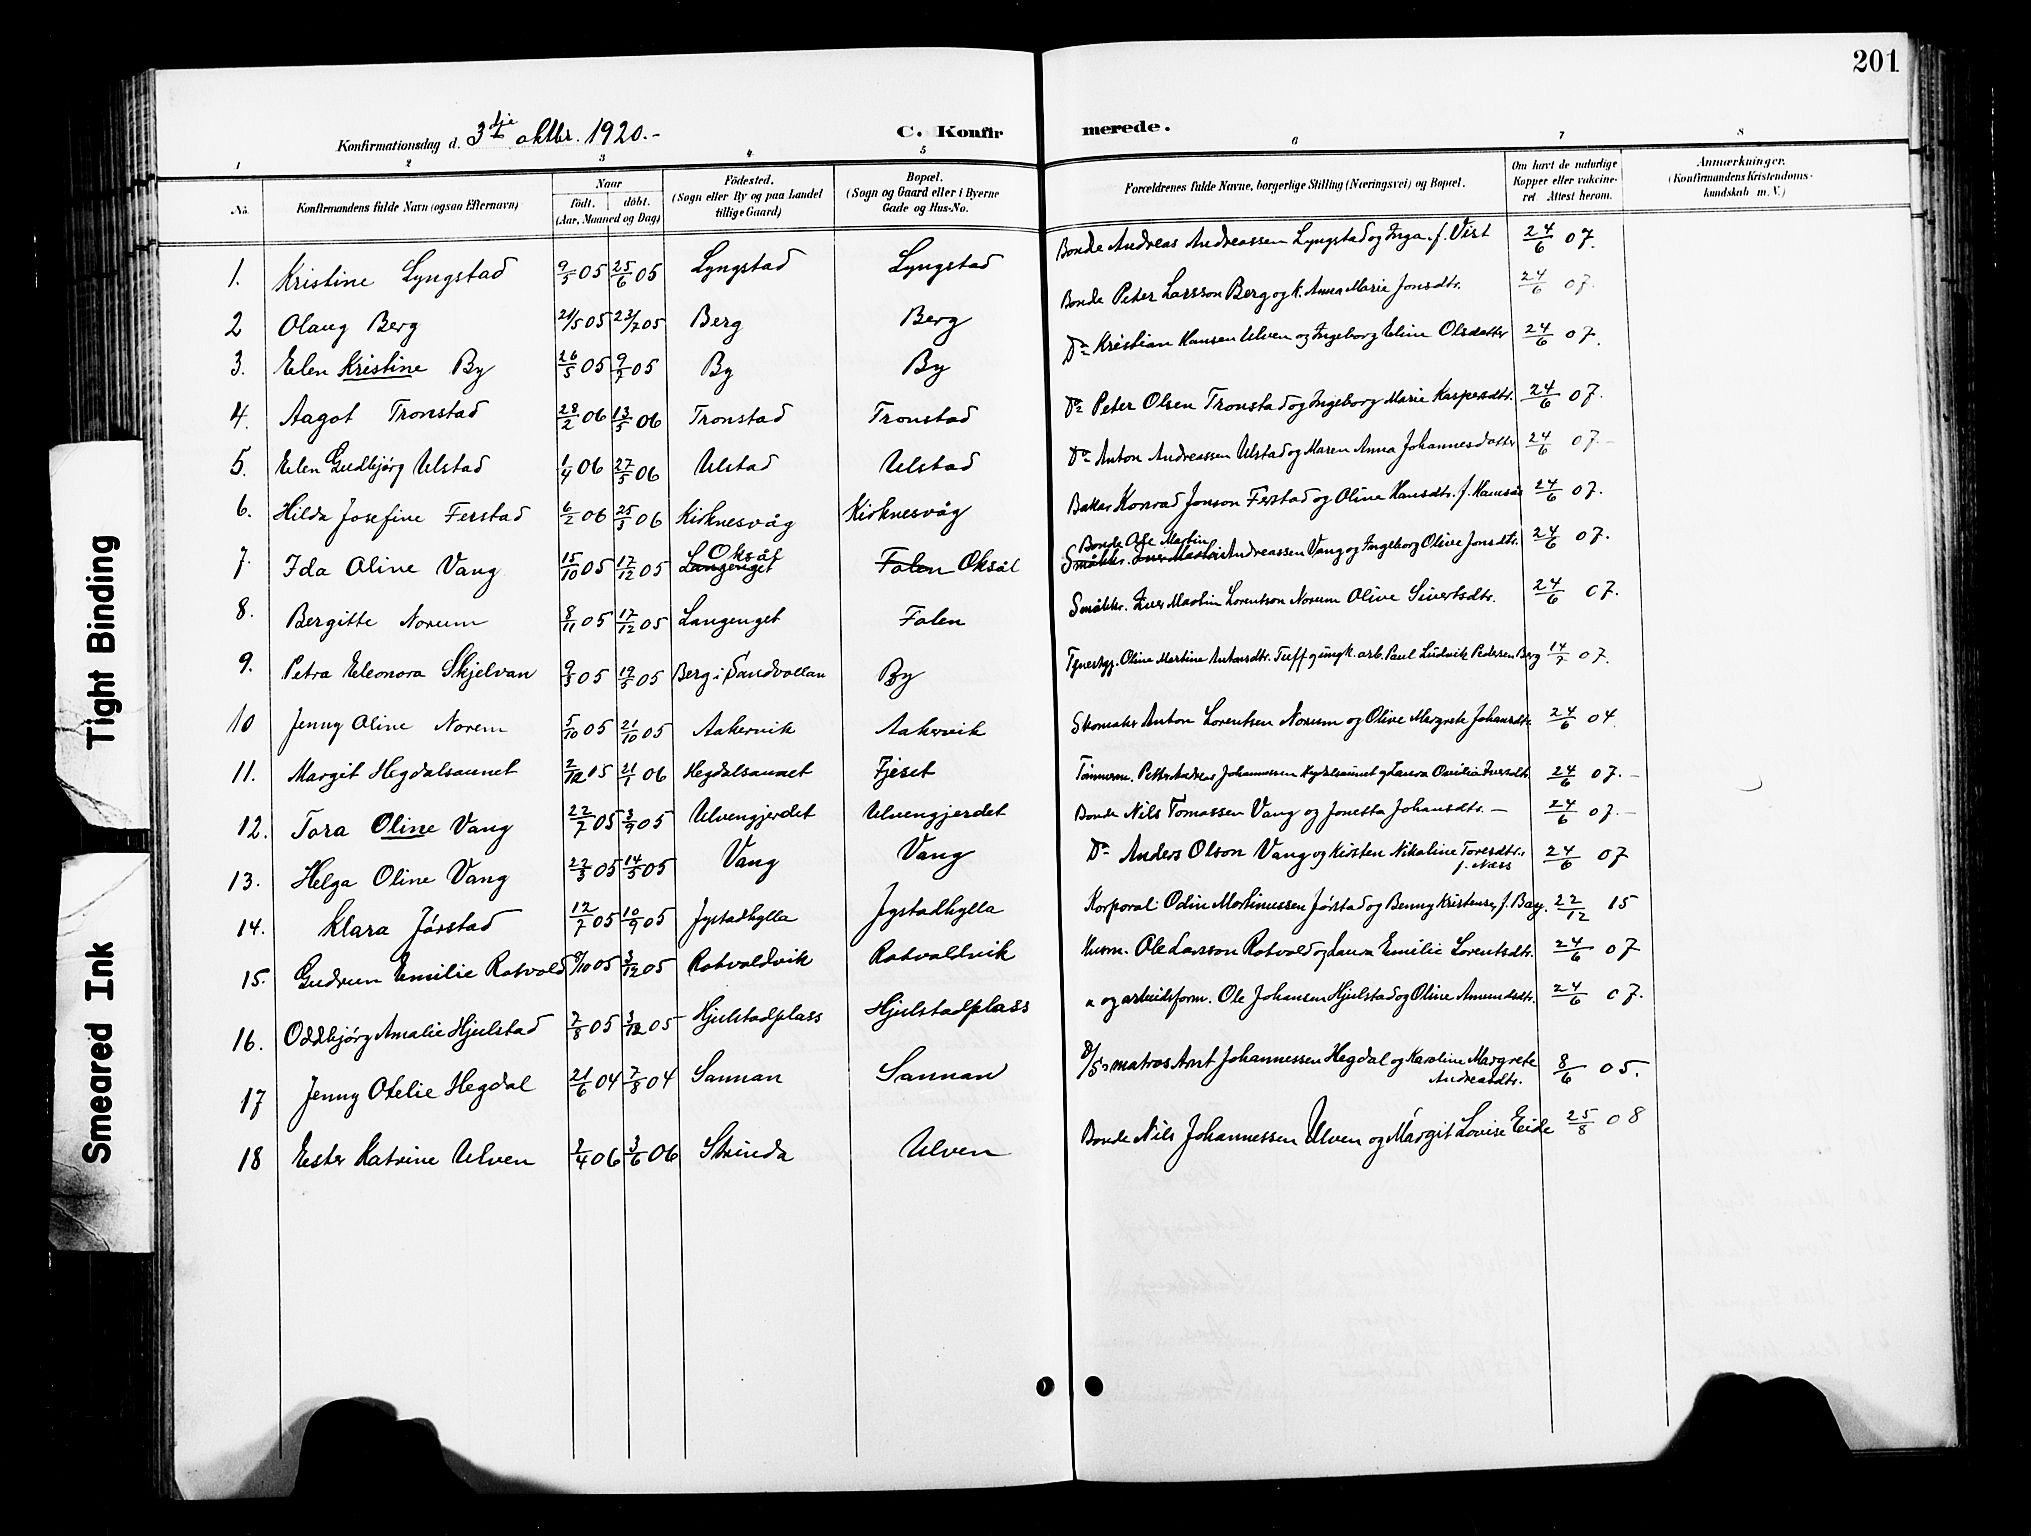 201
Konfirmationsdag d. 3dje oktbr. 1920.-
C. Konfirmerede.
1 2 3 4 5 6 7 8
No. Konfirmandens fulde Navn (ogsaa Efternavn) Naar födt. döbt. (Aar, Maaned og Dag) Födested. (Sogn eller By og paa Landet tillige Gaard) Bopæl. (Sogn og Gaard eller i Byerne Gade og Hus-No. Forældrenes fulde Navne, borgerlige Stilling (Næringsvei) og Bopæl. Om havt de naturlige Kopper eller vakcineret. Attest herom. Anmærkninger. (Konfirmandens Kristendomskundskab m. V.)
1. Kristine Lyngstad 9/5 05 25/6 05 Lyngstad Lyngstad Bonde Andreas Andreassen Lyngstad og Inga f. Vist 24/6 07.
2 Olaug Berg 21/5 05 23/7 05 Berg Berg Bonde Peter Larsson Berg og k. Anna Marie Jonsdtr. 24/6 07.
3. Elen Kristine By 26/5 05 9/7 05 By By Do Kristian Hansen Ulven og Ingeborg Eline Olsdatter 24/6 07.
4. Aagot Tronstad 28/2 06 13/5 06 Tronstad Tronstad Do Peter Olsen Tronstad og Ingeborg Marie Kaspersdtr. 24/6 07.
5. Elen Gudbjørg Ulstad 1/4 06 27/5 06 Ulstad Ulstad Do Anton Andreassen Ulstad og Maren Anna Johannesdatter 24/6 07.-
6. Hilda Josefine Ferstad 6/2 06 25/3 06 Kirknesvåg Kirknesvåg Baker Konrad Jonson Ferstad og Oline Hansdtr. f. Hamsås 24/6 07.
7. Ida Oline Vang 15/10 05 17/12 05 Langenget Oksål Folen Oksål Småbkr. Iver Martin Bonde Ole Martin Andreassen Vang og Ingeborg Olive Jonsdtr. 24/6 07.
8. Bergitte Norum 8/11 05 17/12 05 Langenget Folen Småbkr. Iver Martin Lorentson Norum Olive Sivertsdtr. 24/6 07.
9. Petra Eleonora Skjelvan 9/3 05 19/5 05 Berg i Sandvollan By Tjenestpg. Oline Martine Antonsdtr. Tuff og ungk. arb. Paul Ludvik Pedersen Berg 14/7 07.
10 Jenny Oline Norem 5/10 05 21/10 05 Aakervik Aakervik Skomaker Anton Lorentsen Norum og Olive Margrete Johansdtr 24/6 04.
11. Margit Hegdalsaunet 2/12 15 21/1 06 Hegdalsaunet Fjeset Tömmerm. Petter Andreas Johannessen Hegdalsaunet og Laura Otilia Iversdtr. 24/6 07.-
12. Tora Oline Vang 22/7 05 3/9 05 Ulvengjerdet Ulvengjerdet Bonde Nils Tomassen Vang og Jonetta Johansdtr. - 24/6 07.-
13. Helga Oline Vang 22/3 05 14/5 05 Vang Vang Do Anders Olson Vang og Kirsten Nikoline Toresdtr. f. Næss 24/6 07
14. Klara Jörstad 12/7 05 10/9 05 Jystadhylla Jystadhylla Korporal Odin Martinussen Jörstad og Benny Kristense, f. Bay. 22/12 15
15. Gudrun Emilie Rotvold 8/10 05 3/12 05 Rotvoldvik Rotvoldvik Husm. Ole Larsson Rotvold og Laura Emilie Lorentsdtr. 24/6 07
16. Oddbjørg Amalie Hjulstad 7/8 05 3/12 05 Hjulstadplass Hjulstadplass " og arbeidsform. Ole Johansen Hjulstad og Oline Amundsdtr. 24/6 07.
17 Jenny Otelie Hegdal 21/6 04 7/8 04 Sannan Sannan D/S matros Arnt Johannessen Hegdal og Karoline Margrete Andreasdtr. 8/6 05.
18 Ester Katrine Ulven 2/4 06 3/6 06 Strinda Ulven Bonde Nils Johannessen Ulven og Margit Lovise Eide 25/8 08
Tight Binding
Smeared Ink